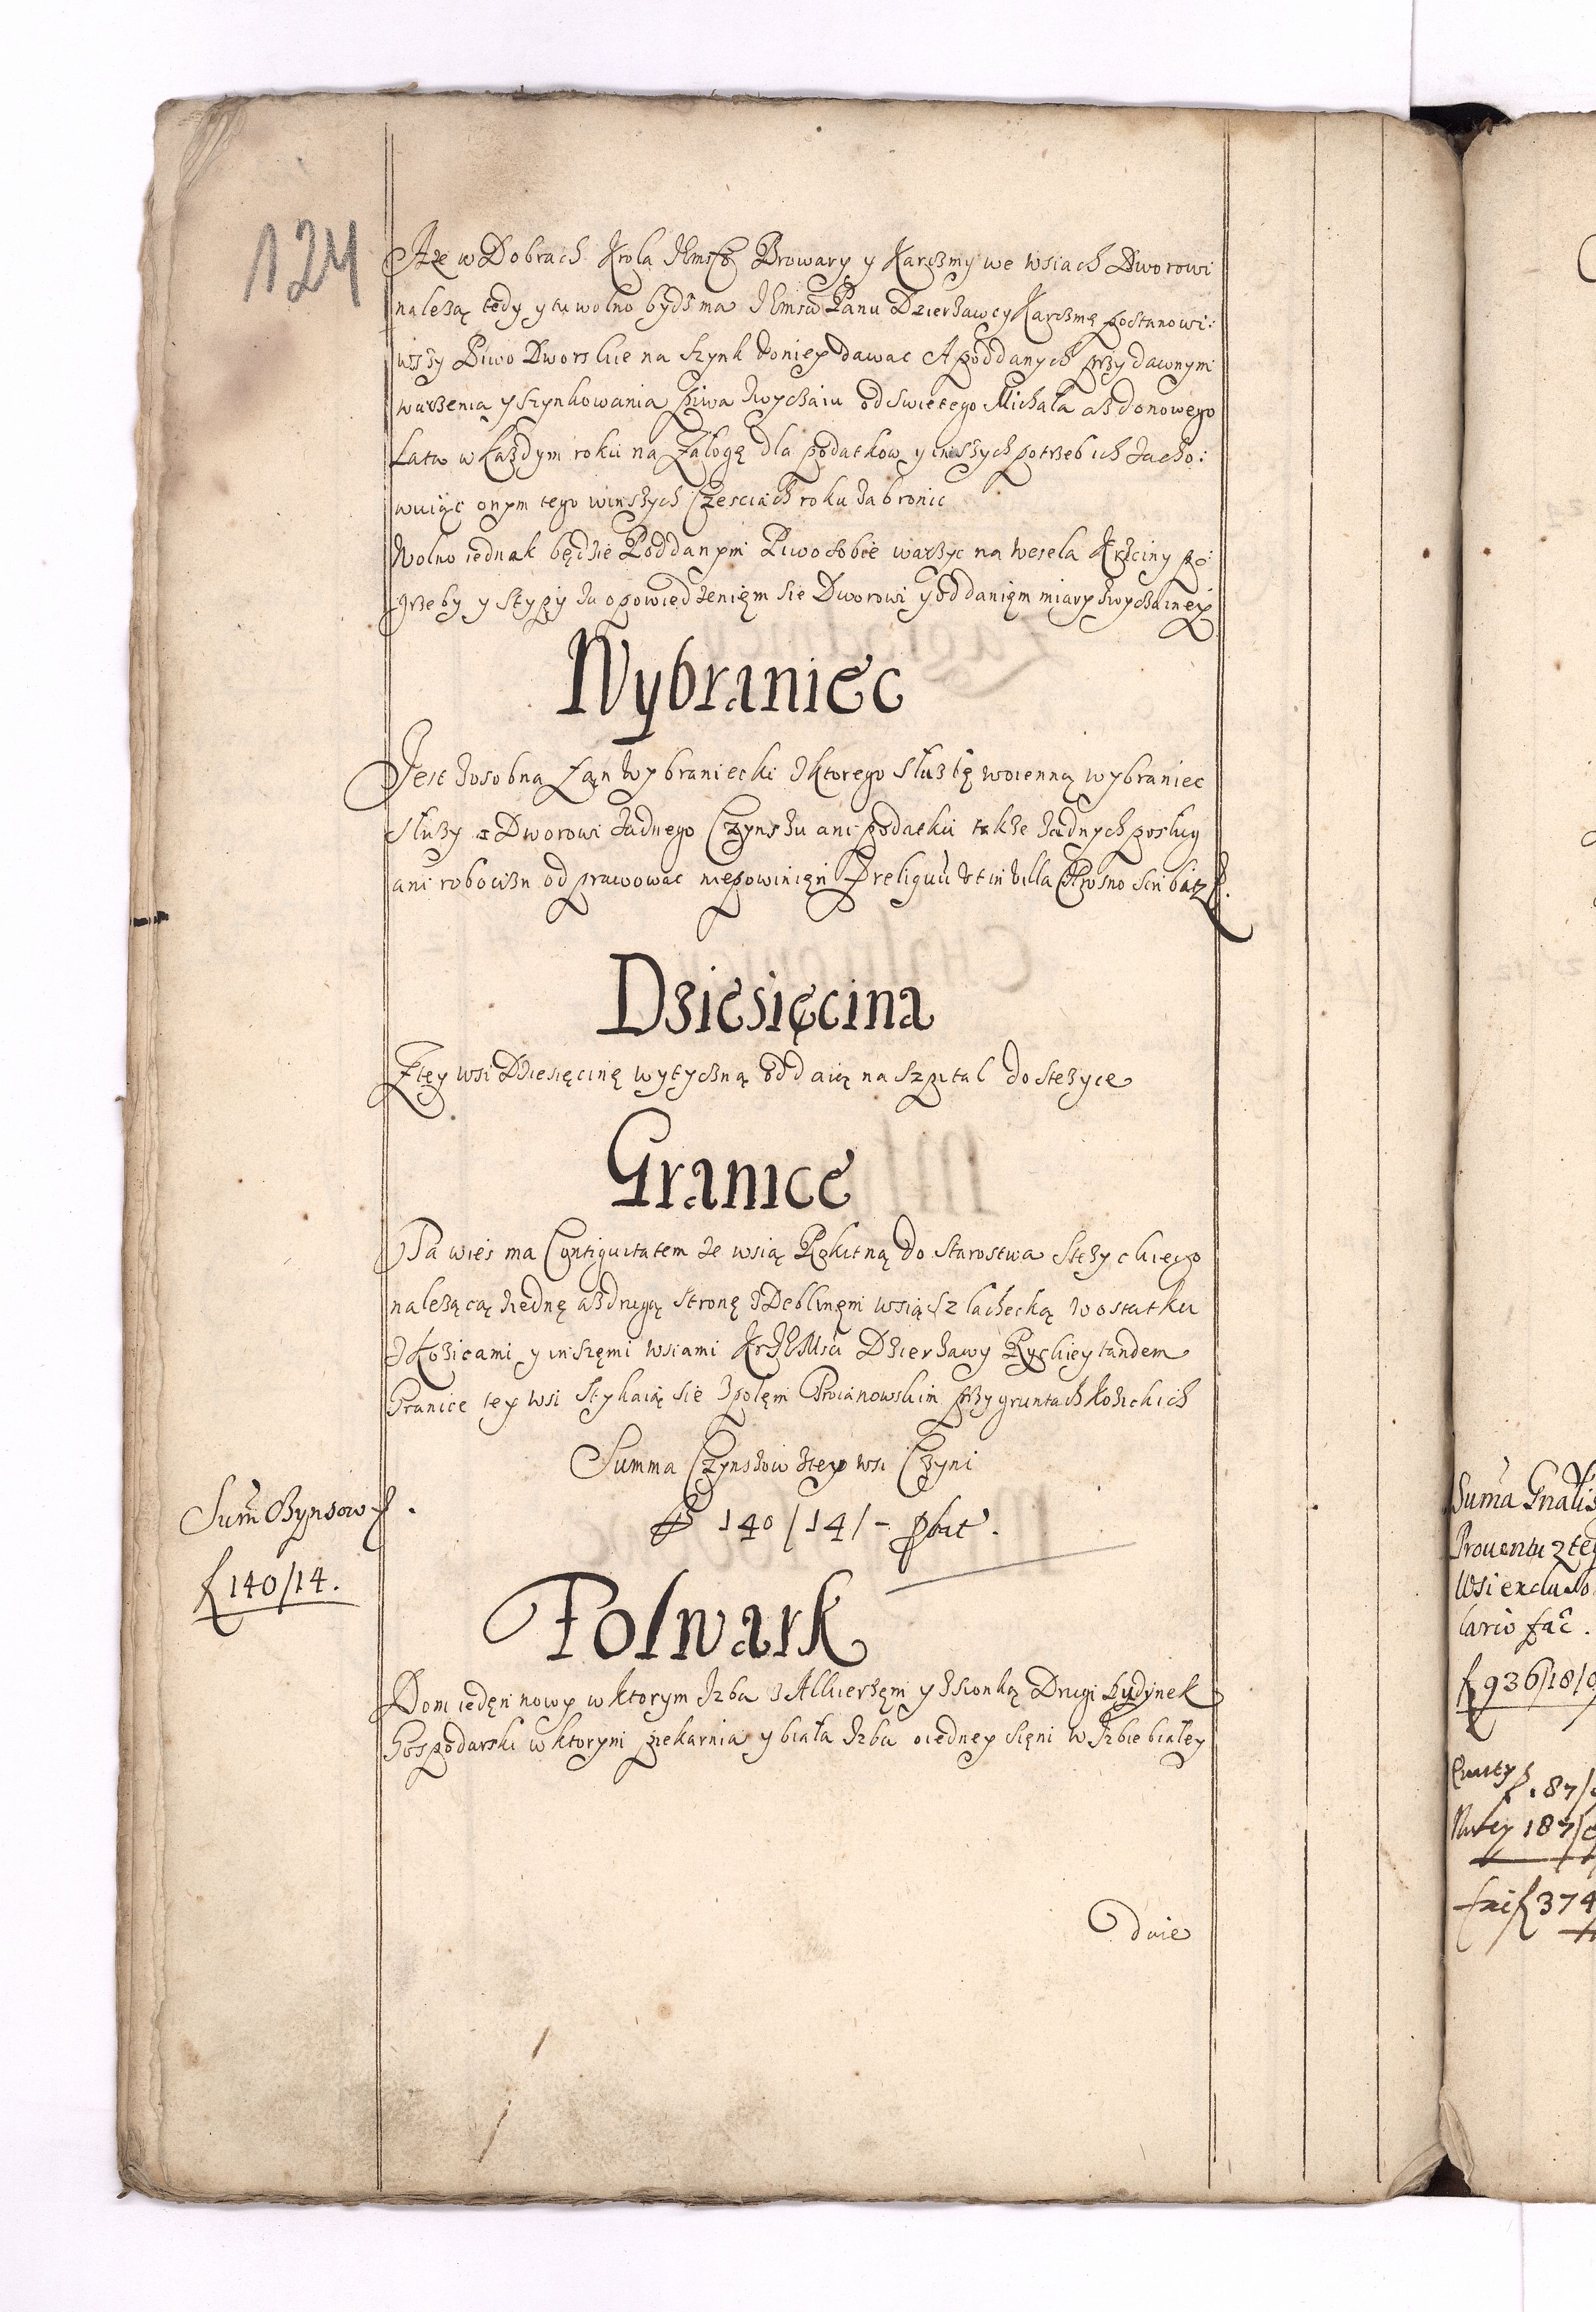 124
Aże w Dobrach Krola JEmsći Browary y Karczmy we wsiach Dworowi
należą tedy y tu wolno bydź ma JEmsci Panu Dzierżawcy Karczmę postanowi:
wszy Piwo Dworskie na Szynk doniey dawac A poddanych przy dawnym
warzenia y szynkowania piwa zwyczaiu od swietego Michała aż do nowego
Lata w każdym roku na Załogę dla podatkow y inszych potrzeb ich zacho:
wuiąc onym tego winszych Częsciach roku zabronic
Wolno iednak będzie Poddanym Piwo sobie warzyc na wesela Krzciny po:
grzeby y Stypy za opowiedzeniem sie Dworowi y oddaniem miary zwyczainey
Wybraniec
Jest zosobna Łan Wybraniecki z ktorego służbę woienną wybraniec
służy a Dworowi żadnego Czynszu ani podatku także żadnych posług
ani robocizn odprawowac niepowinien Preliquū ut in Villa scribit
Dziesięcina
Z tey wsi Dziesięcinę wytyczną oddaią na szpital do Stężyce
Granice
Ta wieś ma Contiguitatem ze wsią Rokitną do Starostwa Stężyckiego
należącą z iednę a z drugą stronę z Deblinem wsią szlachecką w ostatku
z Kozicami y inszemi wsiami KrJEMsci Dzierżawy Ryckiey tandem
Granice tey wsi Stykaią sie z polem przy gruntach Kozickich
Summa Czynszow z tey wsi Czyni
f 140/14/- pbat.
Sum̃ Czynsow f.
f 140/14.
Folwark
Dom ieden nowy w ktorym Izba z Alkierzem y z Sionką Drugi Budynek
Gospodarski w ktorym piekarnia y biała Izba o iedney sieni w Izbie białey
dwie
Sum̃a Gnalis
Prouentu z tey
Wsi exclu
lario fac̃.
f 936/18/
f 187/
187/
f 374